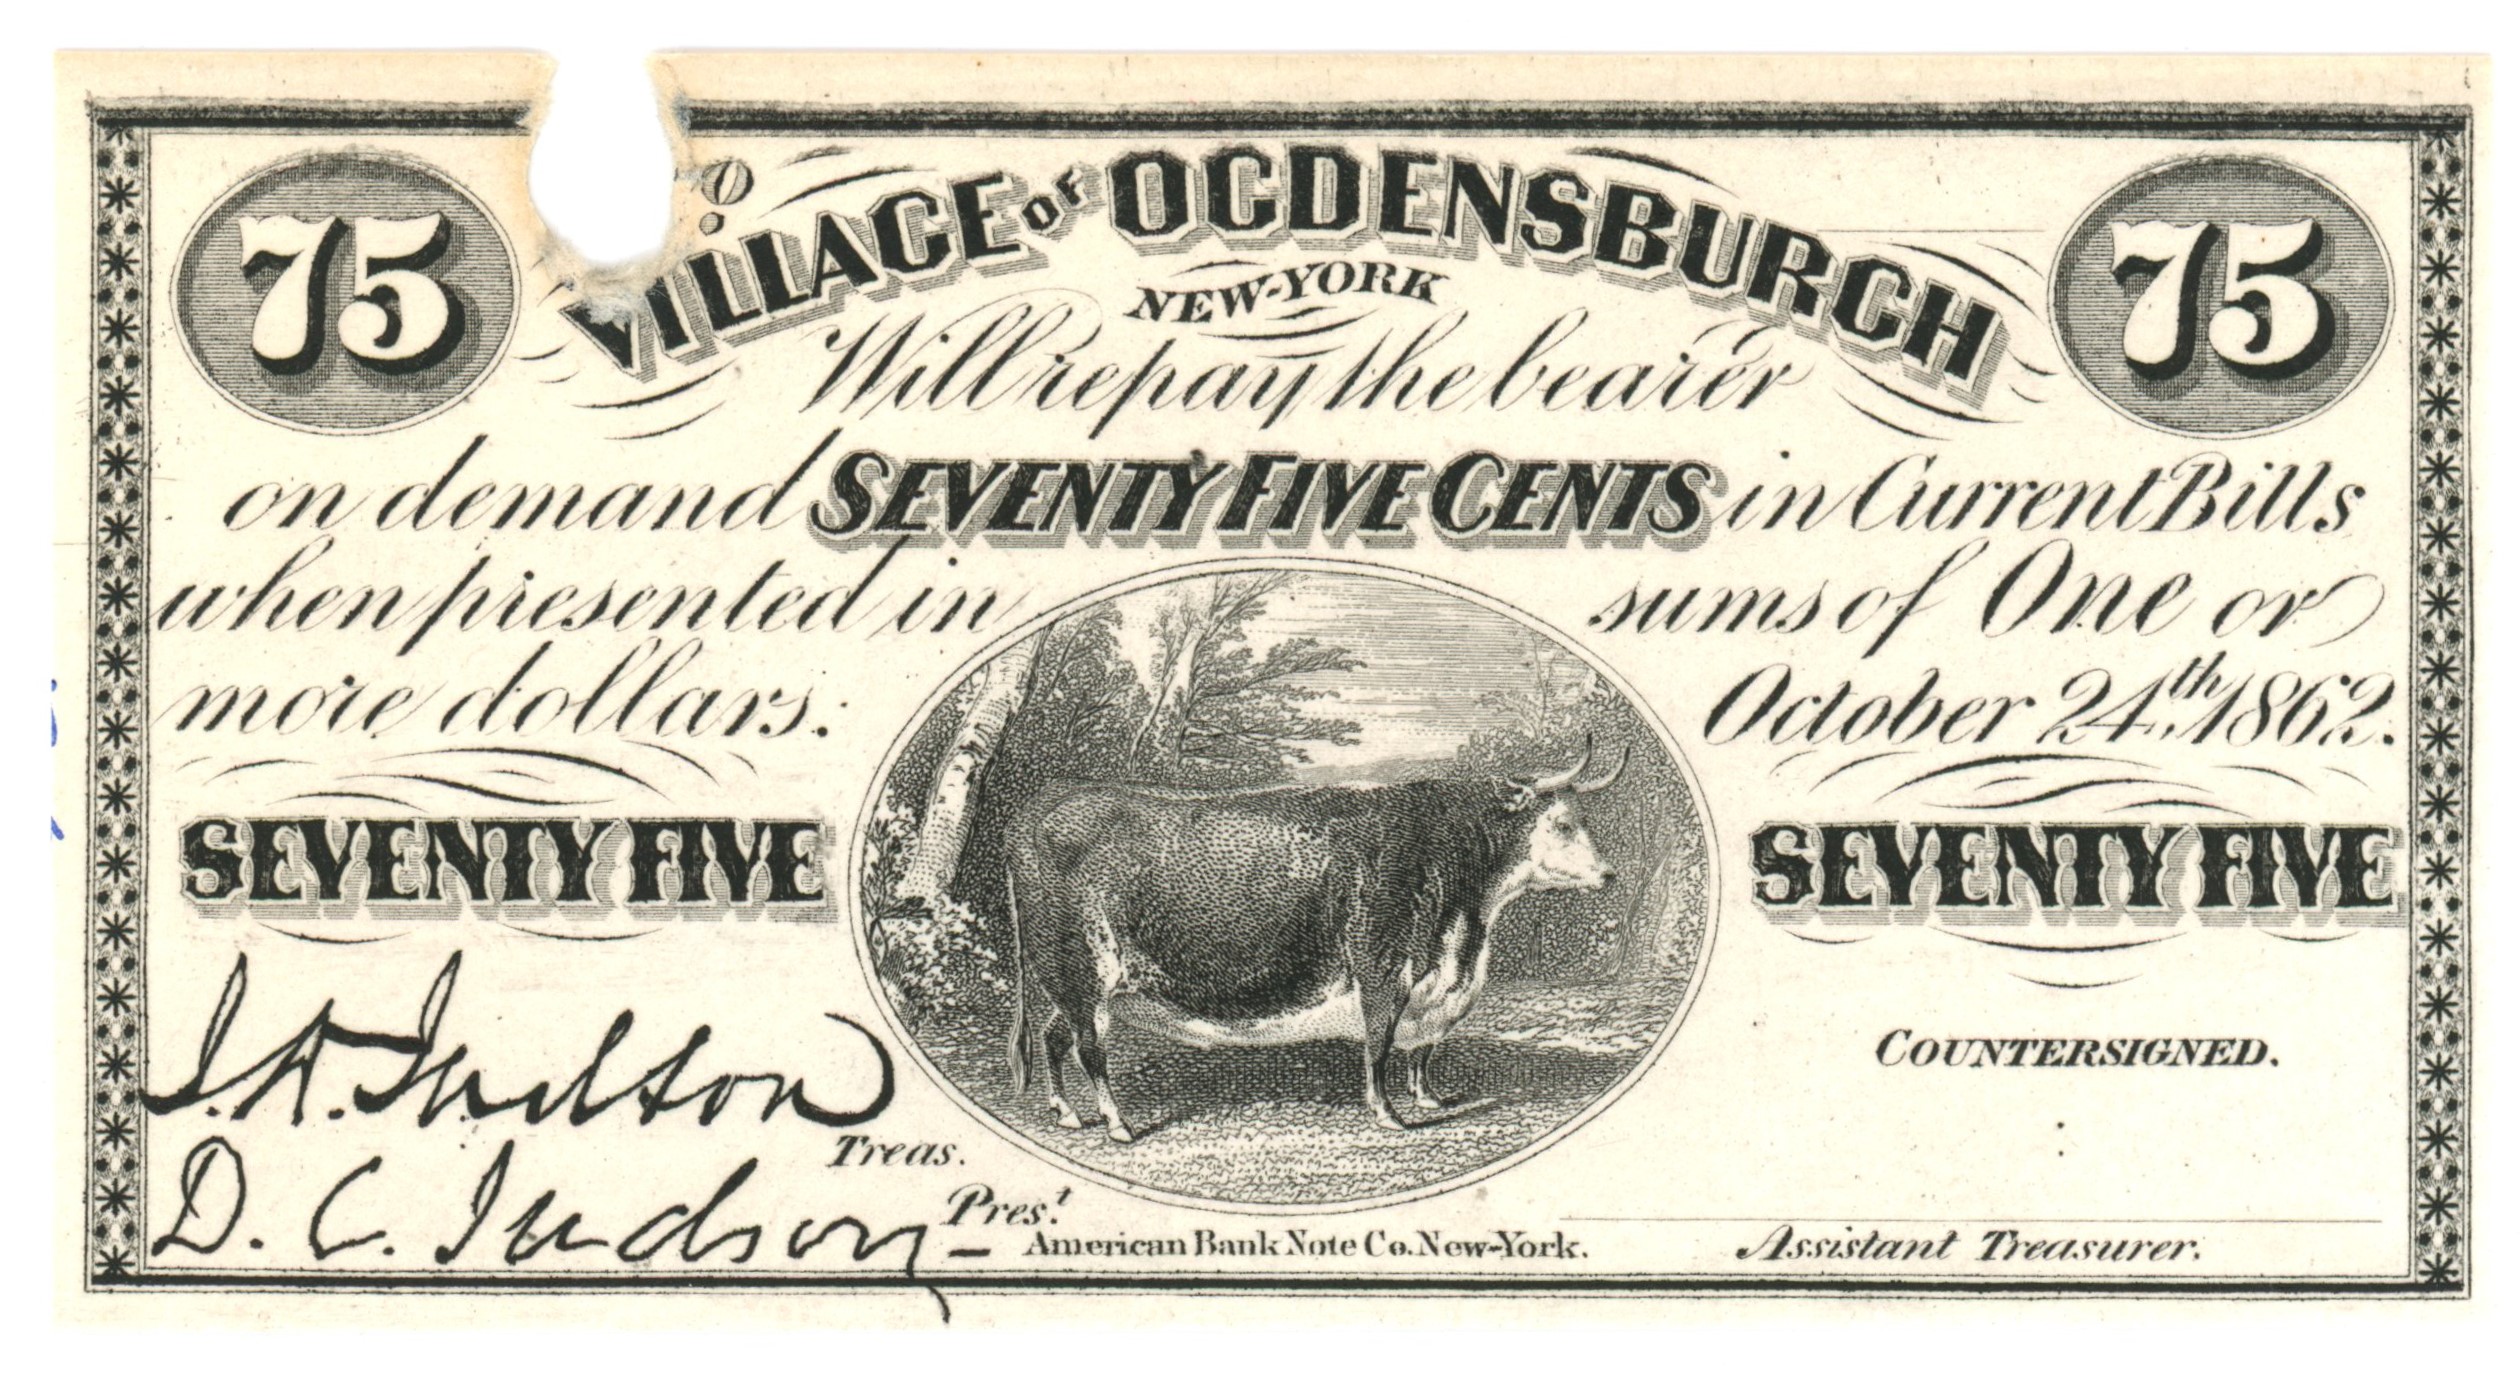 75 VILLAGE OF OGDENSBURGH 75
NEW-YORK
Will repay the bearer
on demand SEVENTY FIVE CENTS in Current Bills
when presented in sums of One or
more dollars. October 24th, 1862.
SEVENTY FIVE SEVENTY FIVE
COUNTERSIGNED.
Judson
Treas.
D. C. Judson Prest.
American Bank Note Co. New-York. Assistant Treasurer.